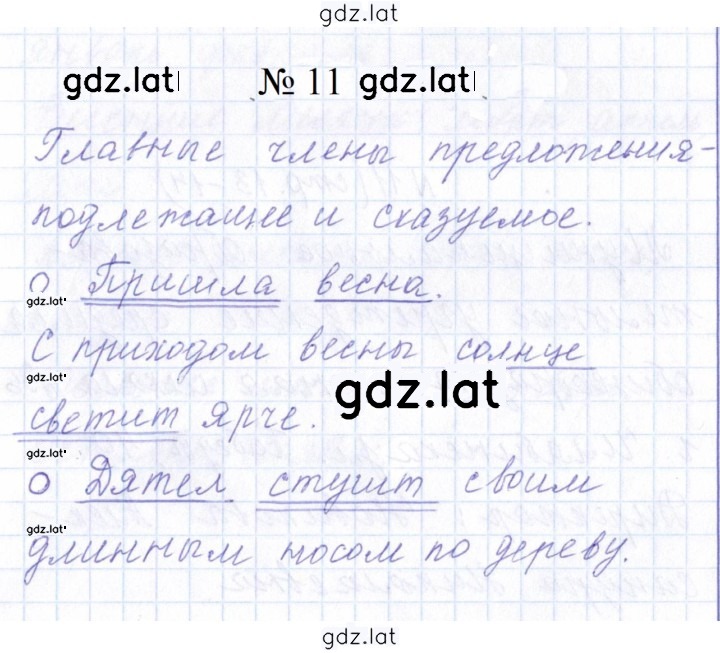 gdz.lat
gdz.lat № 11 gdz.lat
Главные члены предложения-
подлежащее и сказуемое.
Пришла весна.
gdz.lat
С приходом весны солнце
gdz.lat
gdz.lat
светит ярче.
gdz.lat
Дятел стучит своим
gdz.lat
длинным носом по дереву.
gdz.lat